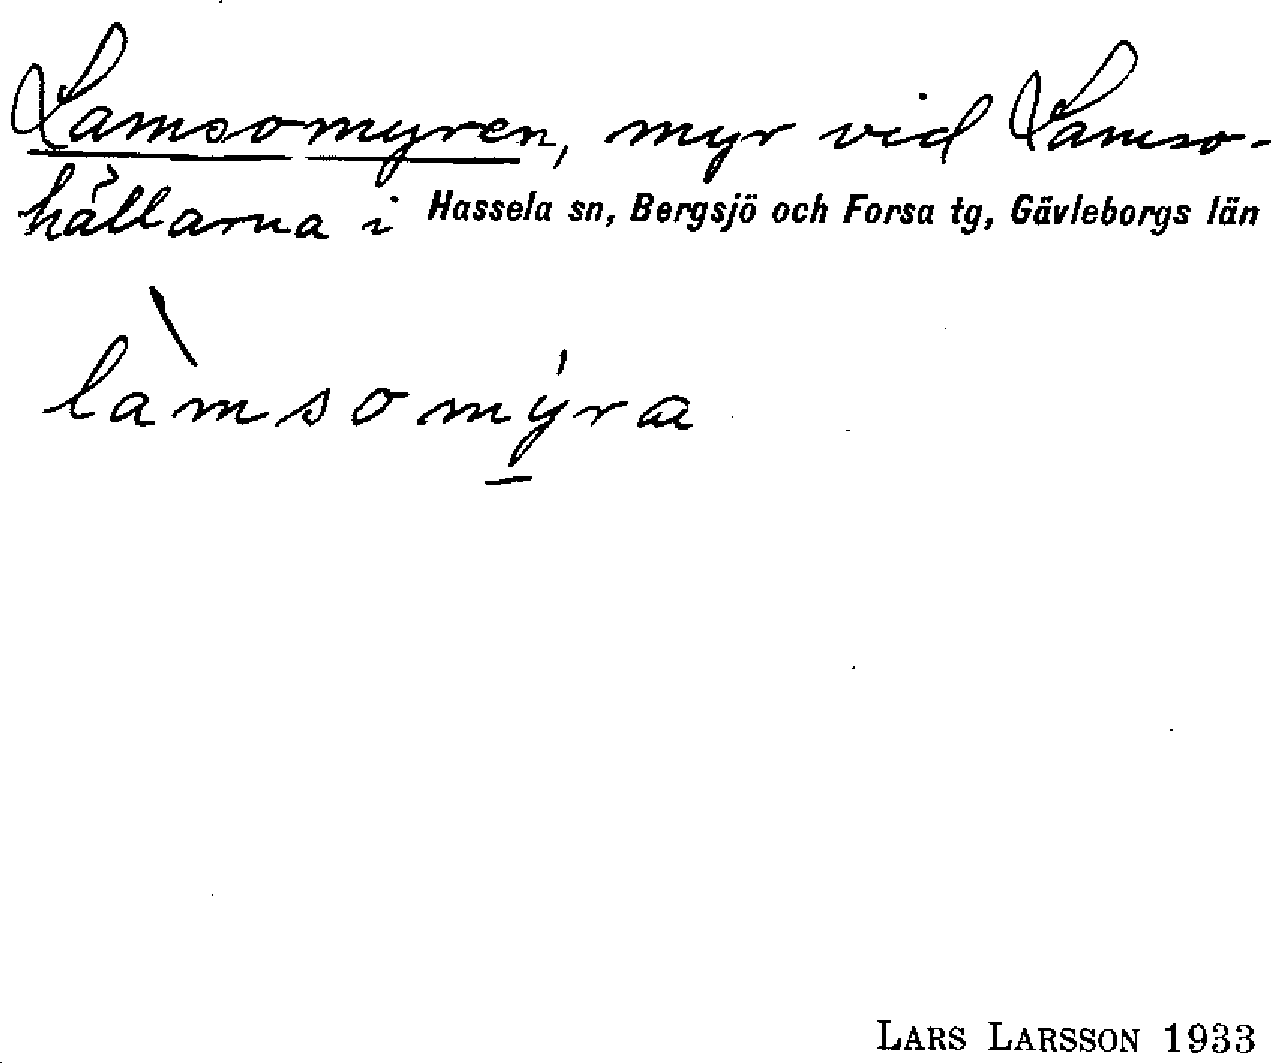 Lamsomyren, myr vid Lamso-
hällarna i Hassela sn, Bergsjö och Forsa tg, Gävleborgs län
làmsomýra
LARS LARSSON 1933